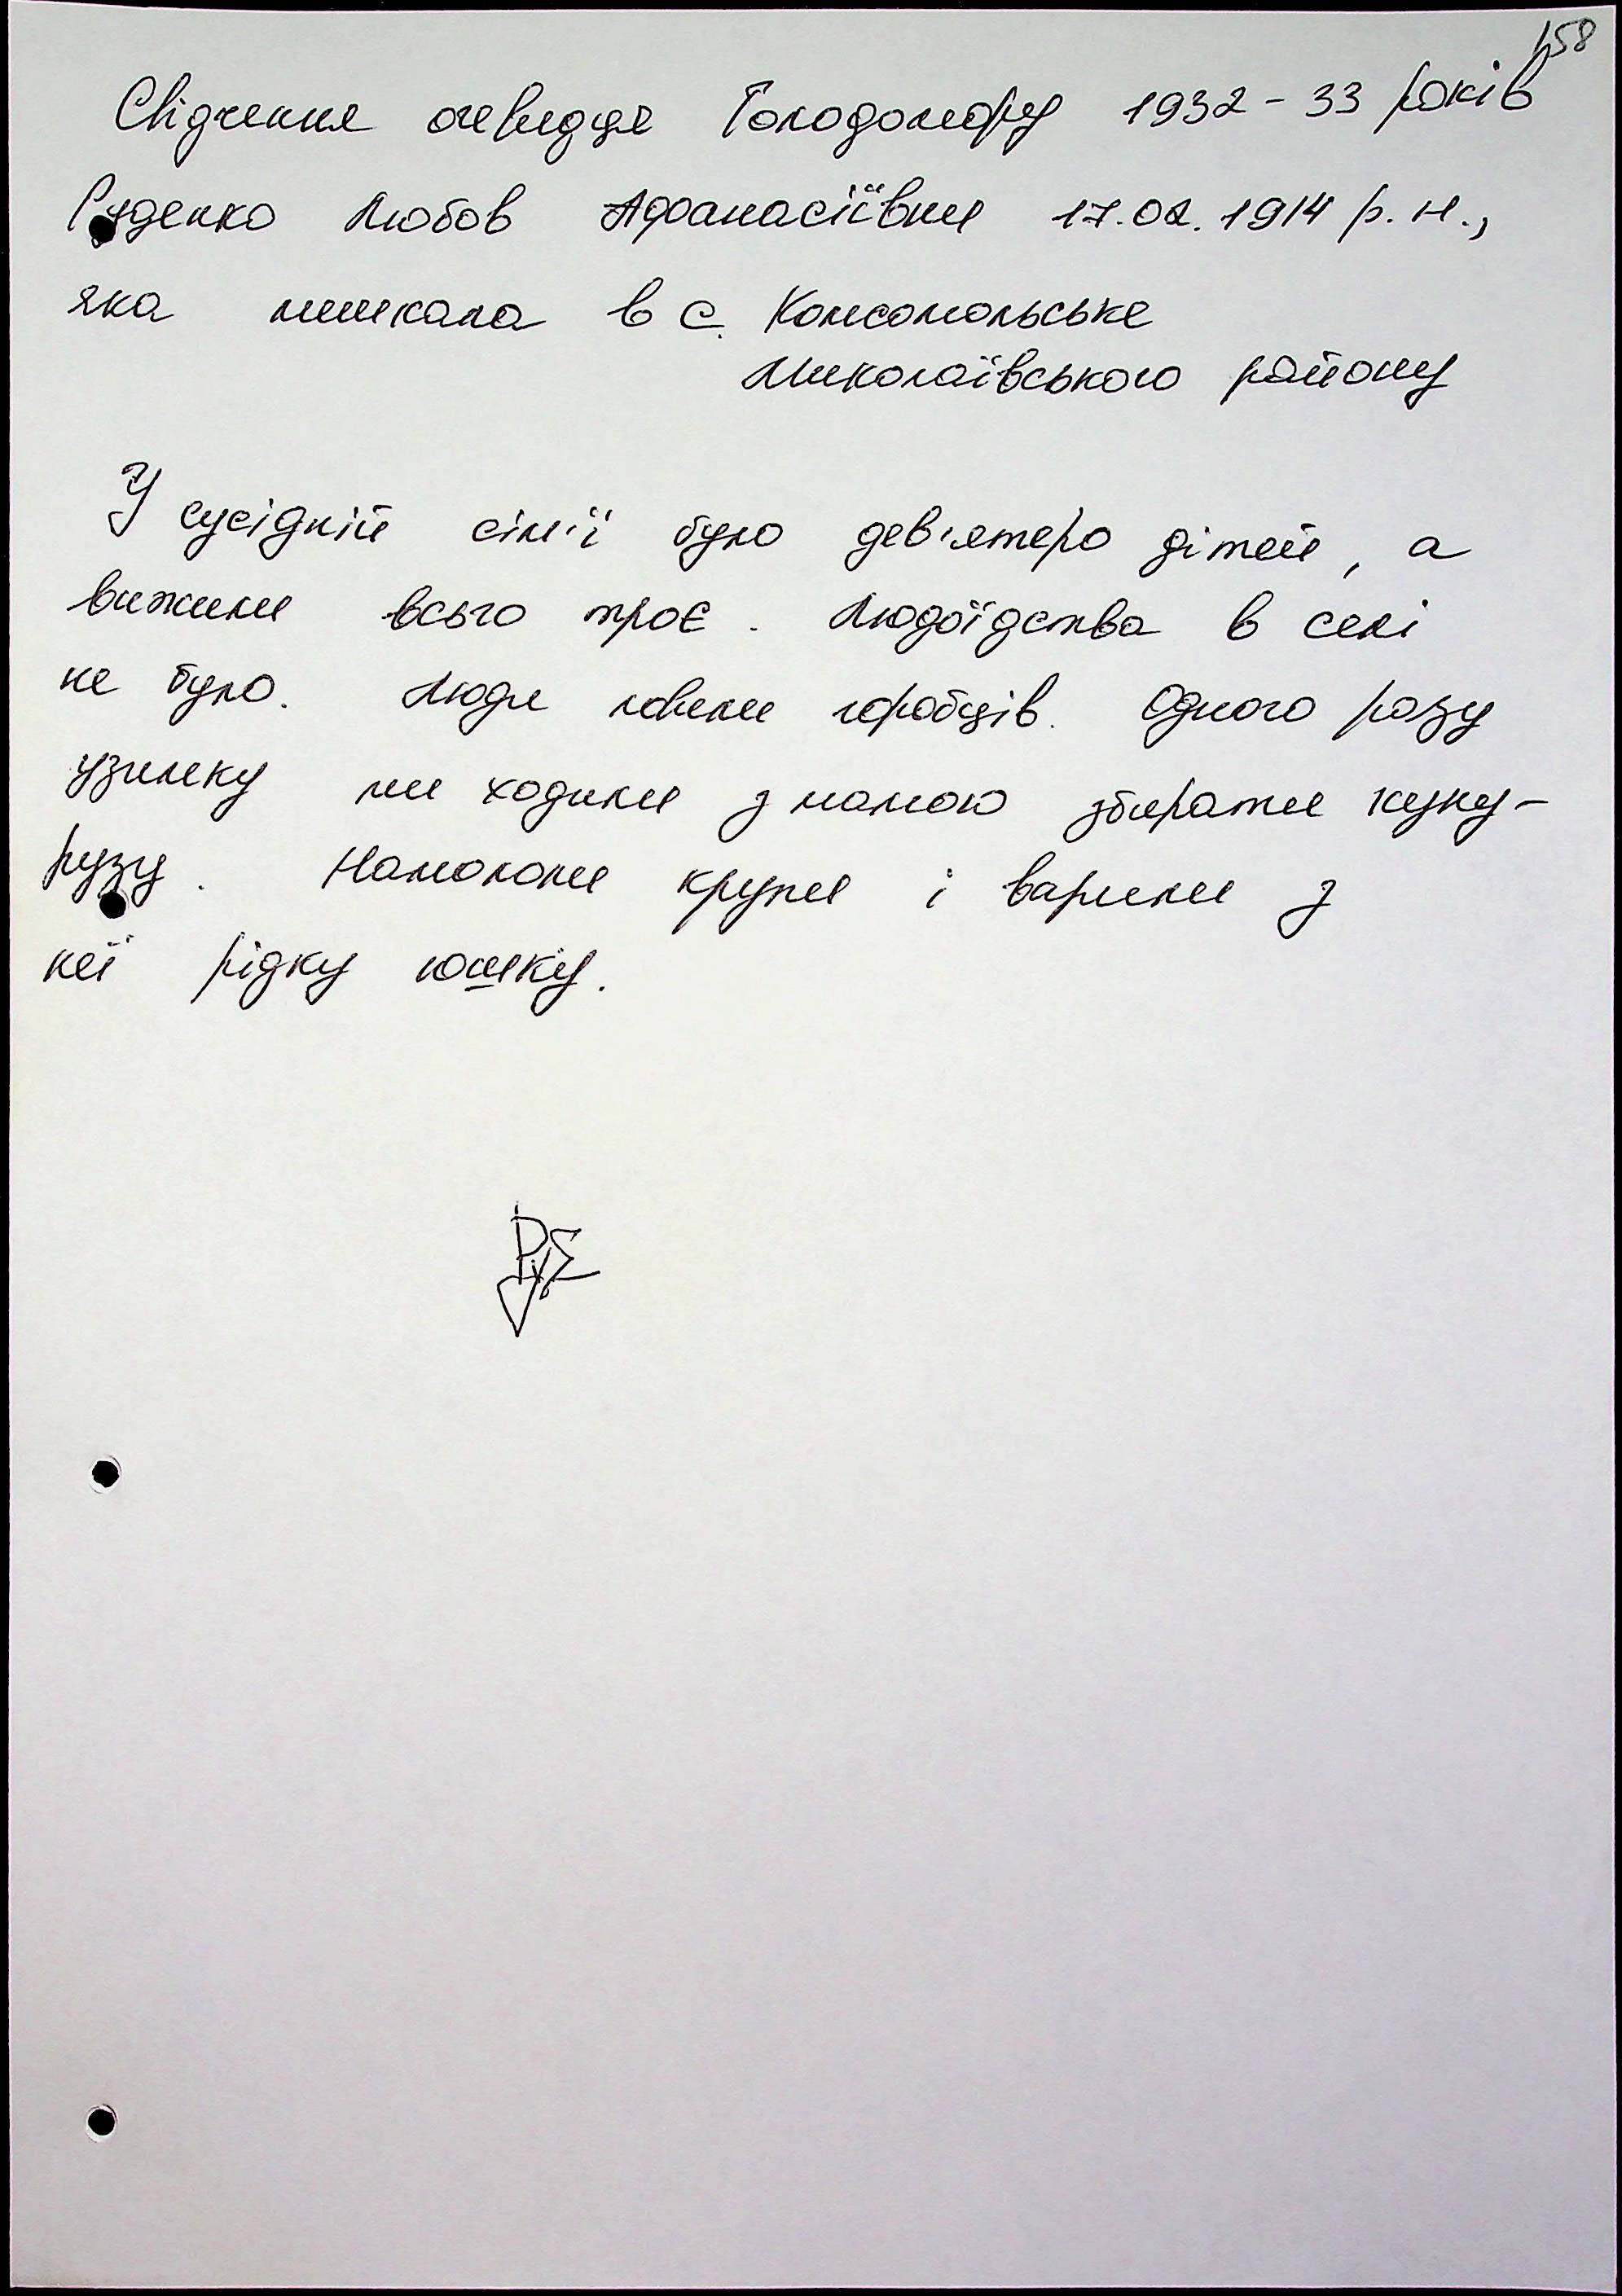 158
Свідчення очевидця Голодомору 1932 - 33 років
Руденко Любов Афанасіївни 17.02.1914 р.н.,
яка мешкала в с. Комсомольське
Миколаївського району
У сусідній сім'ї було дев'ятеро дітей, а
вижили всього троє. Людоїдства в селі
не було. Люди ловили горобців. Одного разу
узимку ми ходили з мамою збирати куку-
рузу. Намололи крупи і варили з
неї рідку юшку.